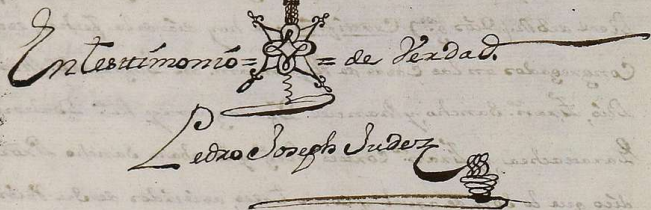 En testimonio = = de Verdad.
Pedro Joseph Judez